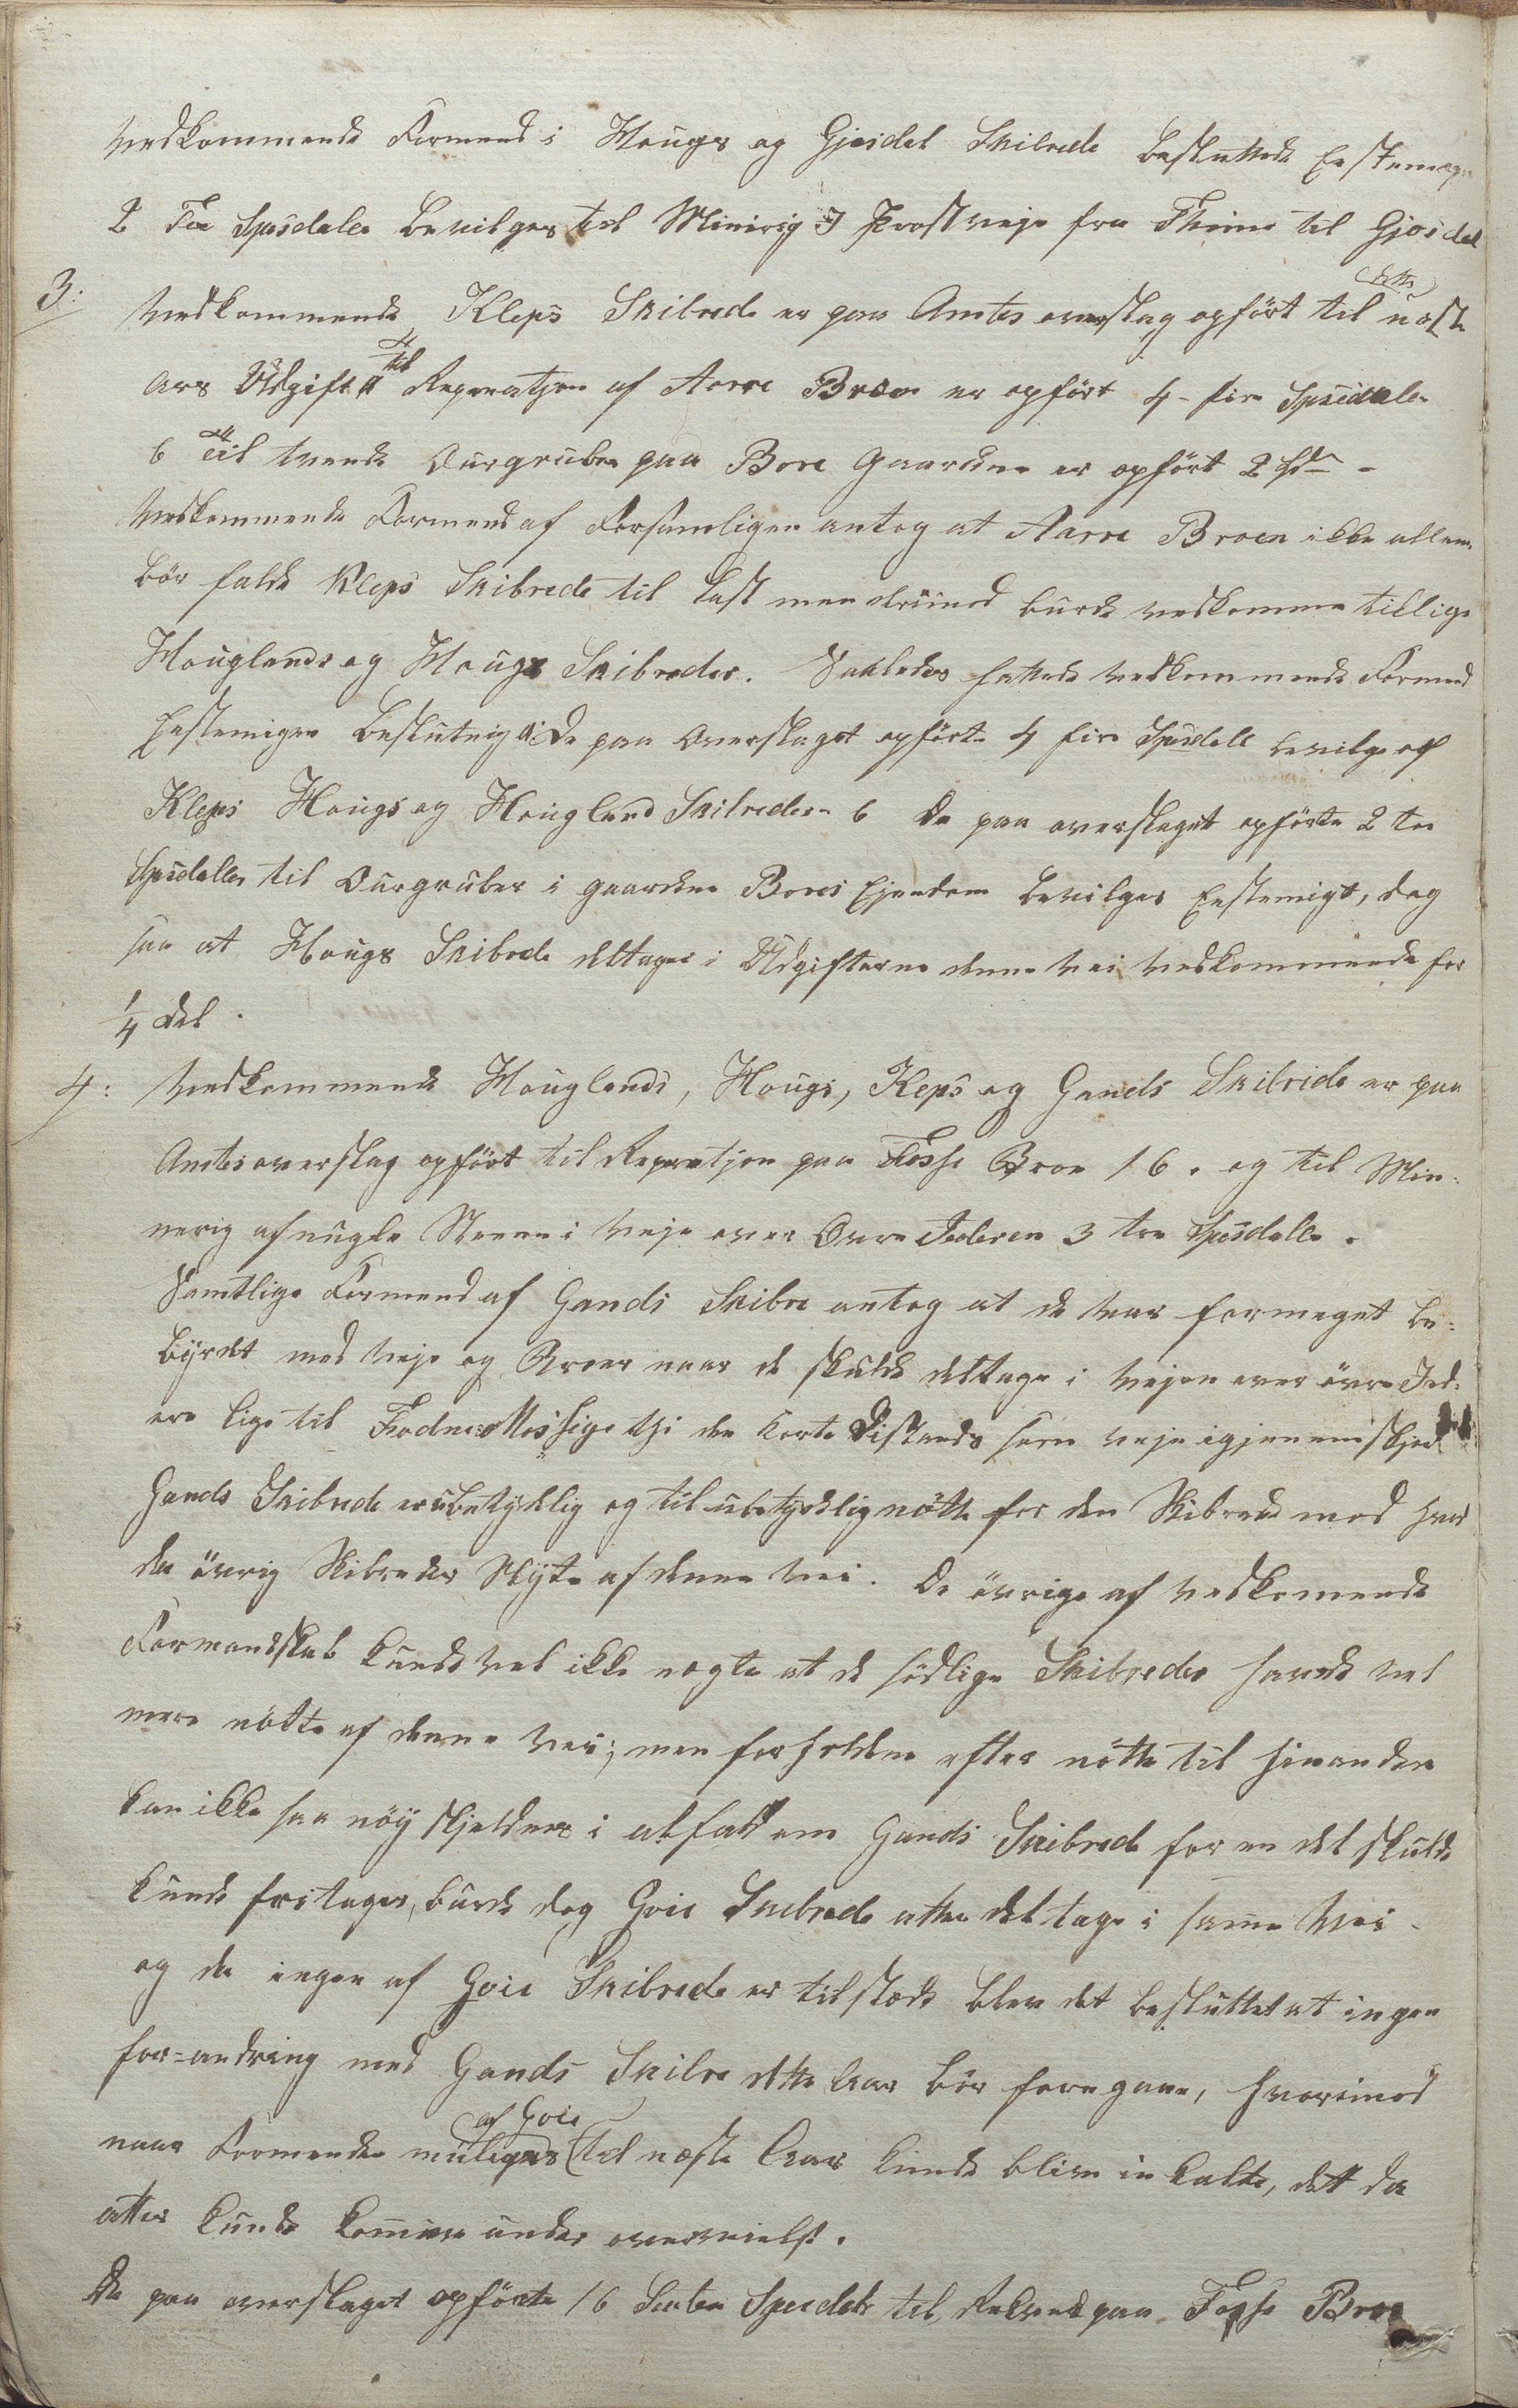 Vedkommende Formend i Hougs og Gjesdal Skibrede besluttede Enstemegn
2 Toe Spesdaler bevilges til Minirig I Prostveje fra Thime til Gjesdal
3: Vedkommende Kleps Skibrede er paa Amtes overslag opført til næste
Ars Udgift a til Reperatjon af Aarre Broen er opført 4 - fire Spesidaler
b til tvende Ourgruber paa Bore Gaardene er opført 2 Sdr -
Vedkommende Formend af Forsamligen antog at Aarre Broen ikke allene
bør falde Kleps Skibrede til last men derimod burde vedkomme tillige
Houglands og Hougs Skibreder. Saaledes fattede vedkommende Formend
Enstemigen beslutnig a: De paa Overslaget opførte 4 fire Spesdale bevilges af
Kleps Hougs og Hougland Skibreder b De paa overslaget opførte 2 toe
Spesdaller til Ourgruber i gaardene Bores Ejendom bevilges Enstemigt, dog
saa at Hougs Skibrede deltager i Udgifterne denne Vei vedkommende for
1/4 del.
4: Vedkommende Houglands, Hougs, Keps og Gands Skibrede er paa
Amtes overslag opført til Reperatjon paa Fosse Broe 16. og til Min-
nerig af nugle Steene i Veje over Øvre Jederen 3 tre Spesdalle.
Samtlige Formend af Gands Skibre antog at de var formeget be-
byrdet med Veje og Broer naar de skulde deltage i Vejen over øvre Jed-
ere lige til thi den korte Distands som veje igjennemskjer
Gands Skibrede er ubetydelig og til ubetydelig nötte for den Skibrede mod hvad
de øvrig Skibreder Nyte af denne Vei. De øvrige af vedkomende
Formandskab kunde vel ikke negte at de sødlige Skibreder havde vel
mere nötte af denne Vei; men forholdene efter nötte til hinanden
kan ikke saa nöy skjeldnes i alfald om Gands Skibrede for en del skulde
kunde fritages, burde dog Goie Skibrede atter deltage i samme Vei -
og da ingen af Goie Skibrede er tilstede blev det besluttet at ingen
for-andring med Gands Skibre dette Aar bør foregaae, hvorimod
naar Formendene af Goie muligens til næste Aar kunde blive inkalte, dett da
atter kunde komme under overveielse.
De paa overslaget opførte 16 Sexten Spesdale til paa Fosse Broe